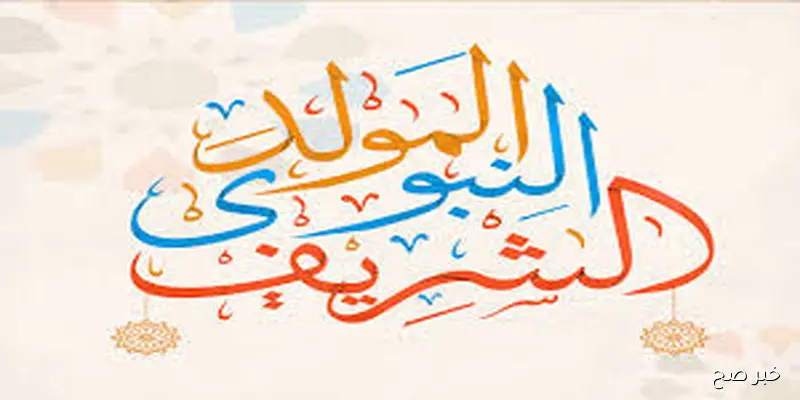 المولد
النبوي
الشريف
خبر صح